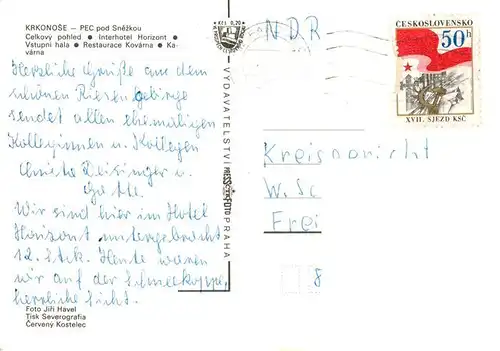 KRKONOŠE – PEC pod Sněžkou
Celkový pohled ● Interhotel Horizont ●
Vstupní hala ● Restaurace Kovárna ● Ka-
várna
Herzliche Grüße aus dem
schönen Riesengebirge
sendet allen ehemaligen
Kolleginnen u. Kollegen
Christa Deisinger u.
Gatte.
Wir sind hier im Hotel
Horizont untergebracht
12. Stck. Heute waren
wir auf der Schneekoppe,
herrliche Sicht.
Foto Jiří Havel
Tisk Severografia
Červený Kostelec
Kčs 0,20
VYDAVATELSTVÍ
PRAHA
NDR
ČESKOSLOVENSKO
50h
XVII. SJEZD KSČ
Kreisgericht
W. Sc
Frei
8